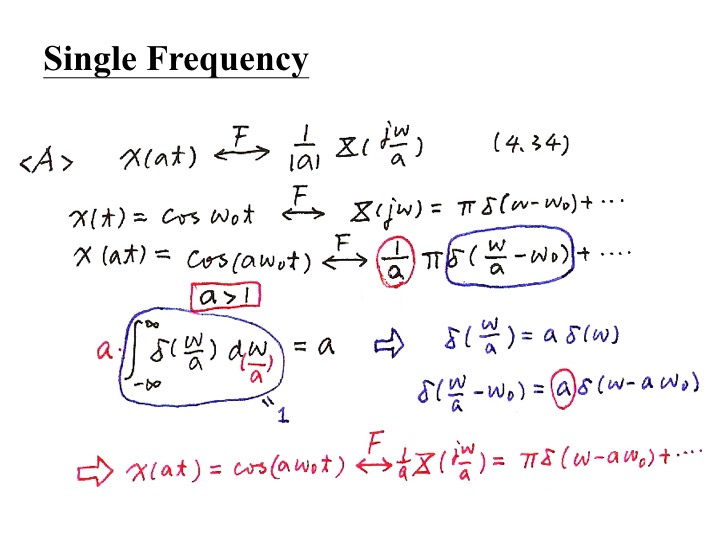 Single Frequency
<A> x(at) ←F→ 1/|a| X(jω/a) (4.34)
x(t) = cos ω₀t ←F→ X(jω) = πδ(ω-ω₀)+ ···
x(at) = cos(aω₀t) ←F→ 1/a πδ(ω/a -ω₀)+ ····
a>1
a·∫_{-∞}^{-∞} δ(ω/a) dω(ω/a) = a ⇨ δ(ω/a) = a δ(ω)
"1 δ(ω/a -ω₀) = a δ(ω-aω₀)
⇨ x(at) = cos(aω₀t) ←F→ 1/a X(jω/a) = πδ(ω-aω₀)+ ····